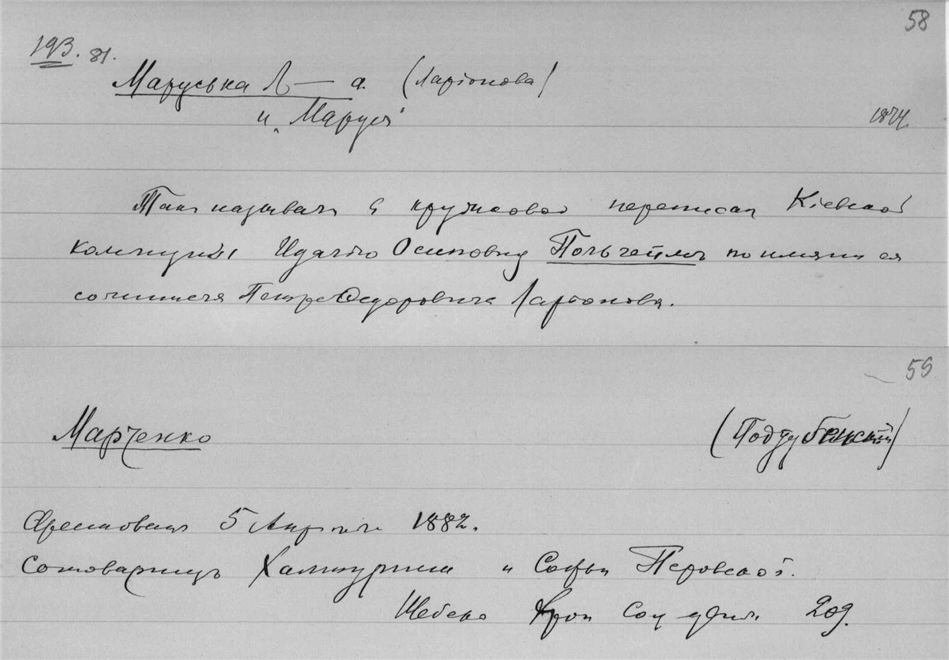 58
193. 81.
Маруська Л — а. (Ларіонова)
и „Маруся"
1874
Такъ называли в кружковой переписке Кіевской
коммуны Осиповну по имяни ея
сочинителя Петра Федоровича Ларіонова.
59
Марченко (Поддубенскій)
Арестованъ 5 Апреля 1882.
Сотоварищъ Халтурина и Софьи Перовской.
Шебеко Хрон соц движ. 209.